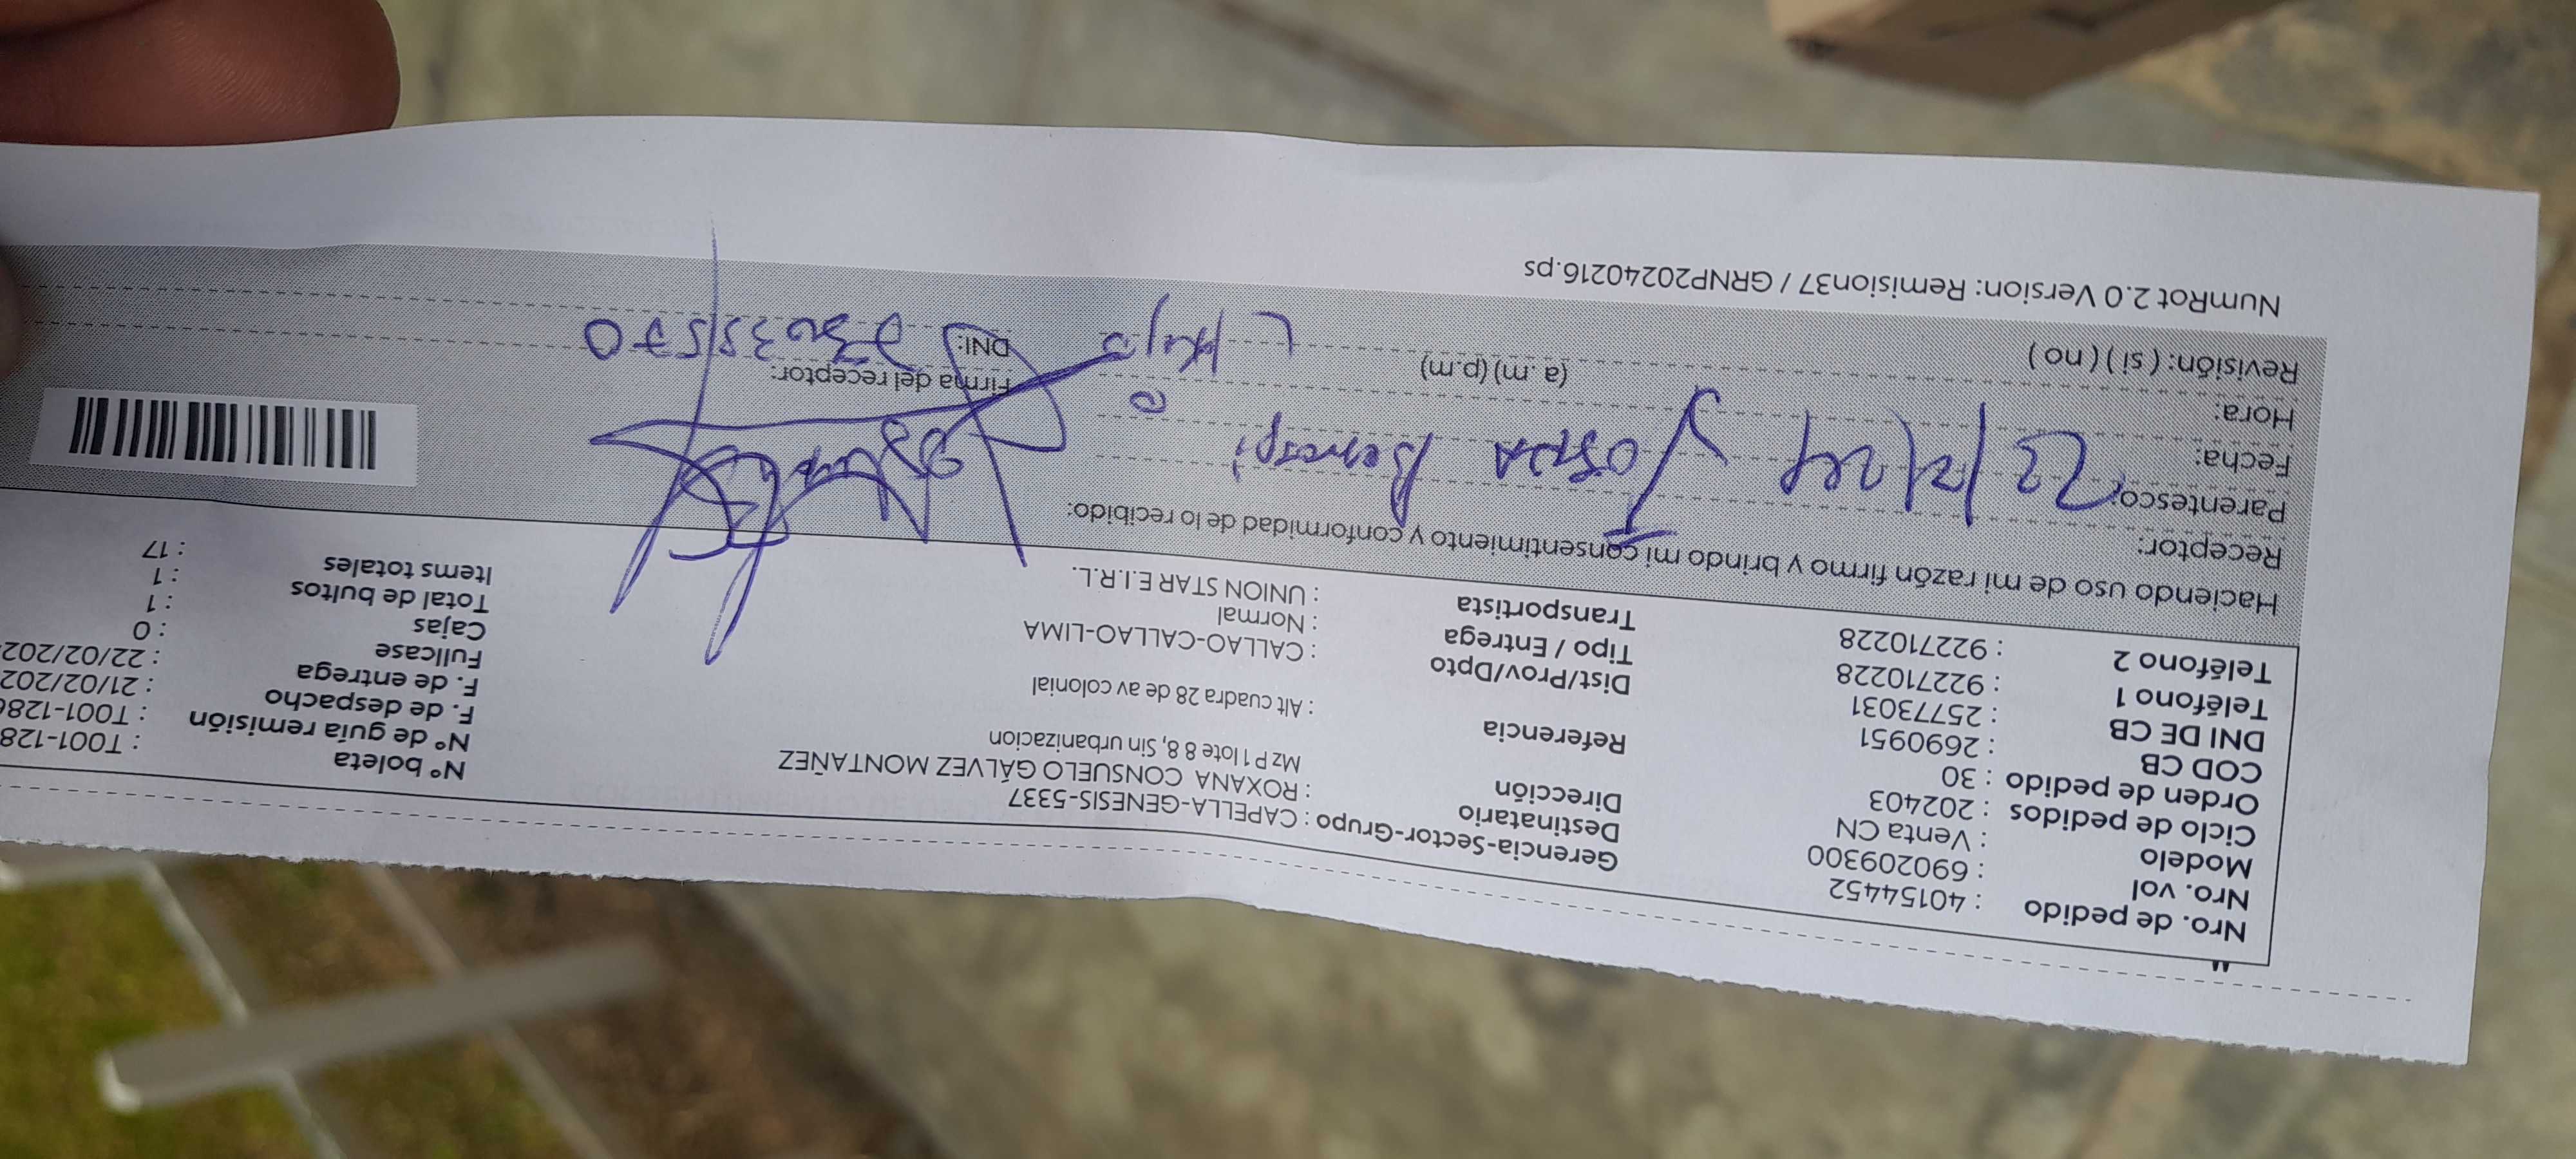 Nro. de pedido : 40154452
Nro. vol : 690209300
Modelo : Venta CN
Ciclo de pedidos : 202403
Orden de pedido : 30
COD CB : 2690951
DNI DE CB : 25773031
Teléfono 1 : 922710228
Teléfono 2 : 922710228
Gerencia-Sector-Grupo : CAPELLA-GENESIS-5337
Destinatario : ROXANA CONSUELO GÁLVEZ MONTAÑEZ
Dirección Mz P 1 lote 8 8, Sin urbanizacion
Referencia : Alt cuadra 28 de av colonial
Dist/Prov/Dpto : CALLAO-CALLAO-LIMA
Tipo / Entrega : Normal
Transportista : UNION STAR E.I.R.L.
Nº boleta : T001-128
Nº de guía remisión : T001-128
F. de despacho : 21/02/202
F. de entrega : 22/02/202
Fullcase : 0
Cajas : 1
Total de bultos : 1
Items totales : 17
Haciendo uso de mi razón firmo y brindo mi consentimiento y conformidad de lo recibido:
Receptor:
Parentesco:
Fecha:
Hora: (a.m) (p.m)
Revisión: ( si ) ( no )
Firma del receptor:
DNI:
NumRot 2.0 Version: Remision37 / GRNP20240216.ps